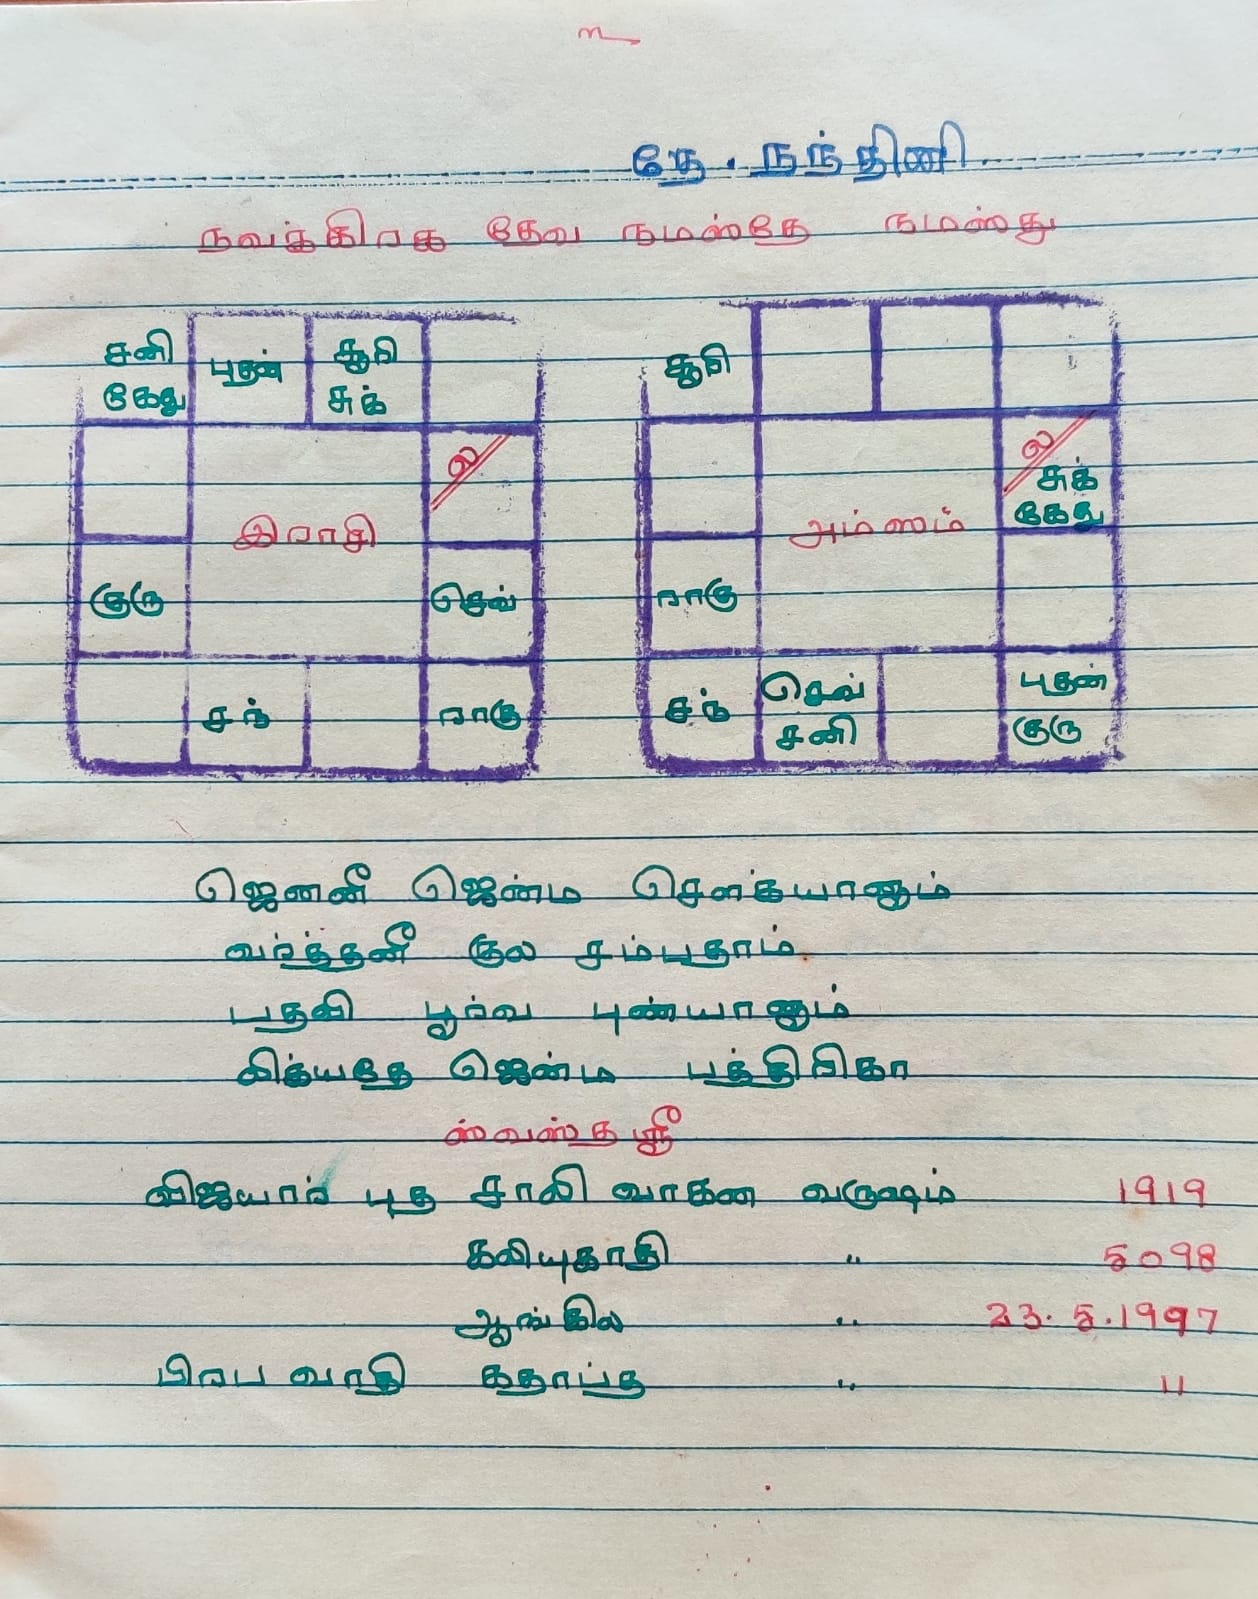 தே. நந்தினி
நவக்கிரக தேவ நமஸ்தே நமஸ்து
சனி புதன் சூரி
கேது சுக்
ல
இராசி
குரு செவ்
சந் ராகு
சூரி
ல
சுக்
கேது
அம்ஸம்
ராகு
சந் செவ் புதன்
சனி குரு
ஜெனனீ ஜென்ம சௌக்யானும்
வர்த்தனீ குல சம்பதாம்
பதவி பூர்வ புண்யானும்
லிக்யதே ஜென்ம பத்திரிகா
ஸ்வஸ்த ஸ்ரீ
விஜயார் புத சாலி வாகன வருஷம் 1919
கலியுகாதி " 5098
ஆங்கில " 23.5.1997
பிரப வாதி கதாப்த " 11